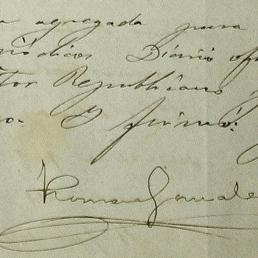 agregada para
ódicos Diario of
tor Republicano
o. Y firmó.
Gonzale